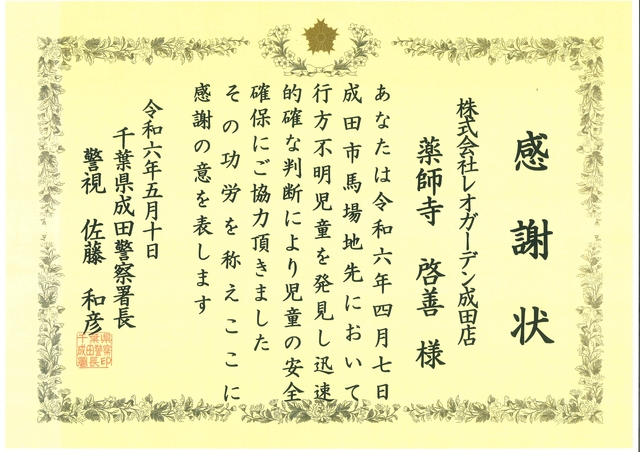 感謝状
株式会社レオガーデン成田店
薬師寺 啓善 様
あなたは令和六年四月七日
成田市馬場地先において
行方不明児童を発見し迅速
的確な判断により児童の安全
確保にご協力頂きました
その功労を称えここに
感謝の意を表します
令和六年五月十日
千葉県成田警察署長
警視 佐藤 和彦
千葉県成田警察署長印